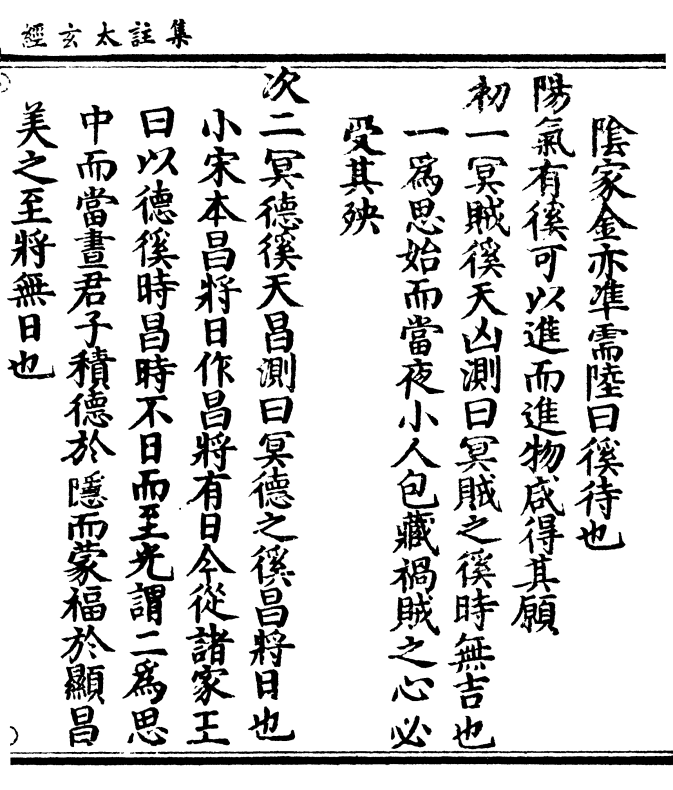 集註太玄經
陰家金亦準需陸曰徯待也
陽氣有徯可以進而進物咸得其願
初一冥賊徯天凶測曰冥賊之徯時無吉也
一爲思始而當夜小人包藏禍賊之心必
受其殃
次二冥德徯天昌測曰冥德之徯昌將日也
小宋本昌將日作昌將有日今從諸家王
曰以德徯時昌時不日而至光謂二爲思
中而當晝君子積德於隱而蒙福於顯昌
美之至將無日也